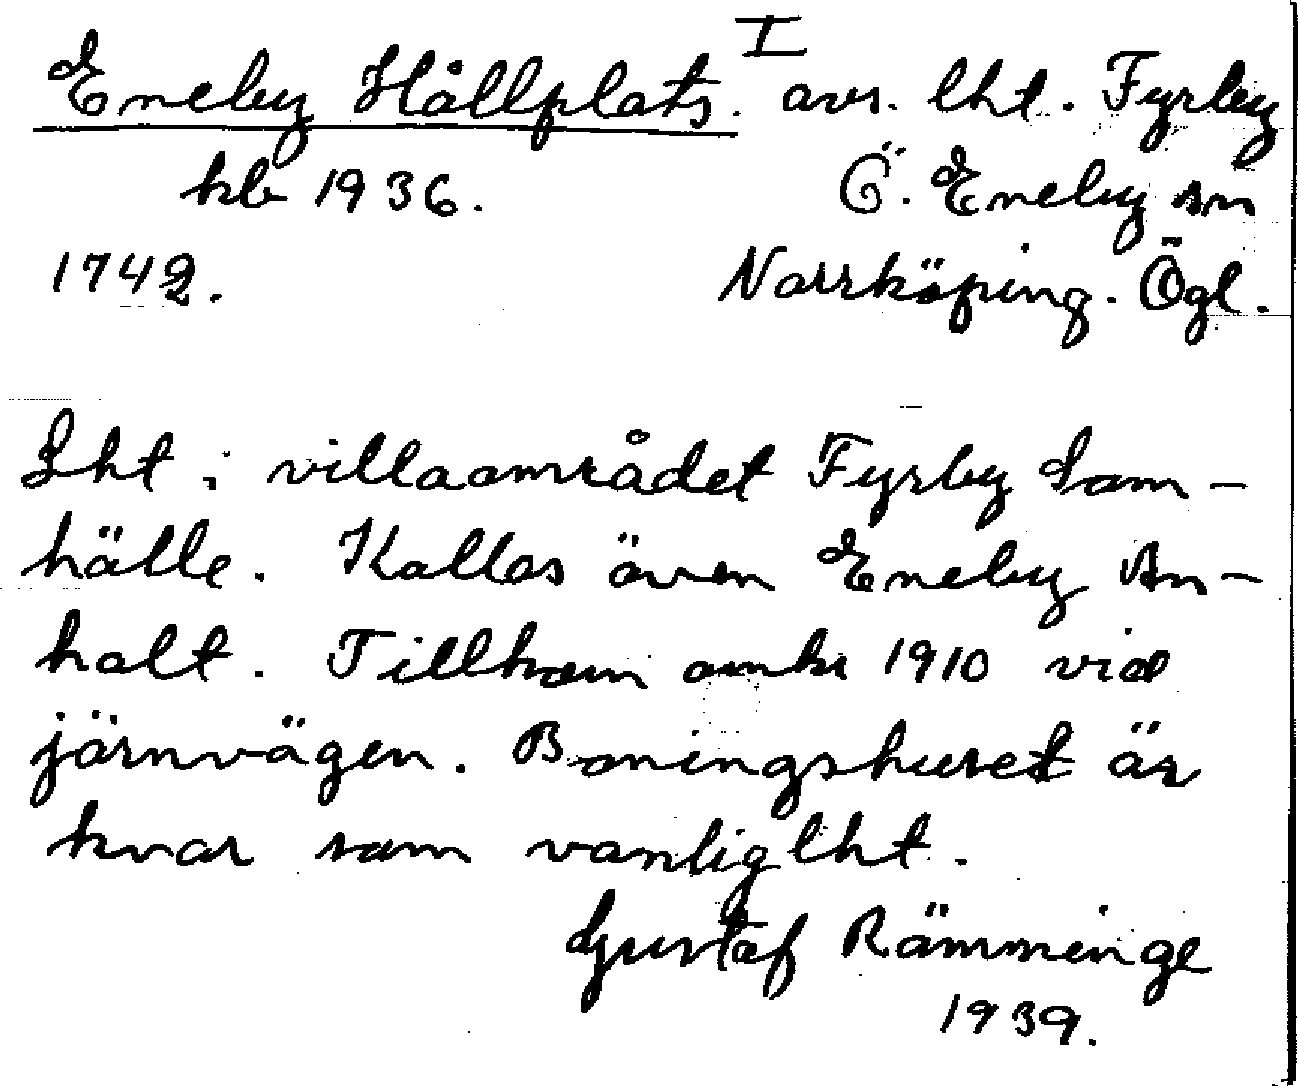 I
Eneby Hållplats. avs. lht. Fyrby
kb 1936. Ö. Eneby sn
1742. Norrköping. Ögl.
Lht i villaområdet Fyrby Sam-
hälle. Kallas även Eneby An-
halt. Tillkom omkr 1910 vid
järnvägen. Boningshuset är
kvar som vanlig lht.
Gustaf Rämminge
1939.